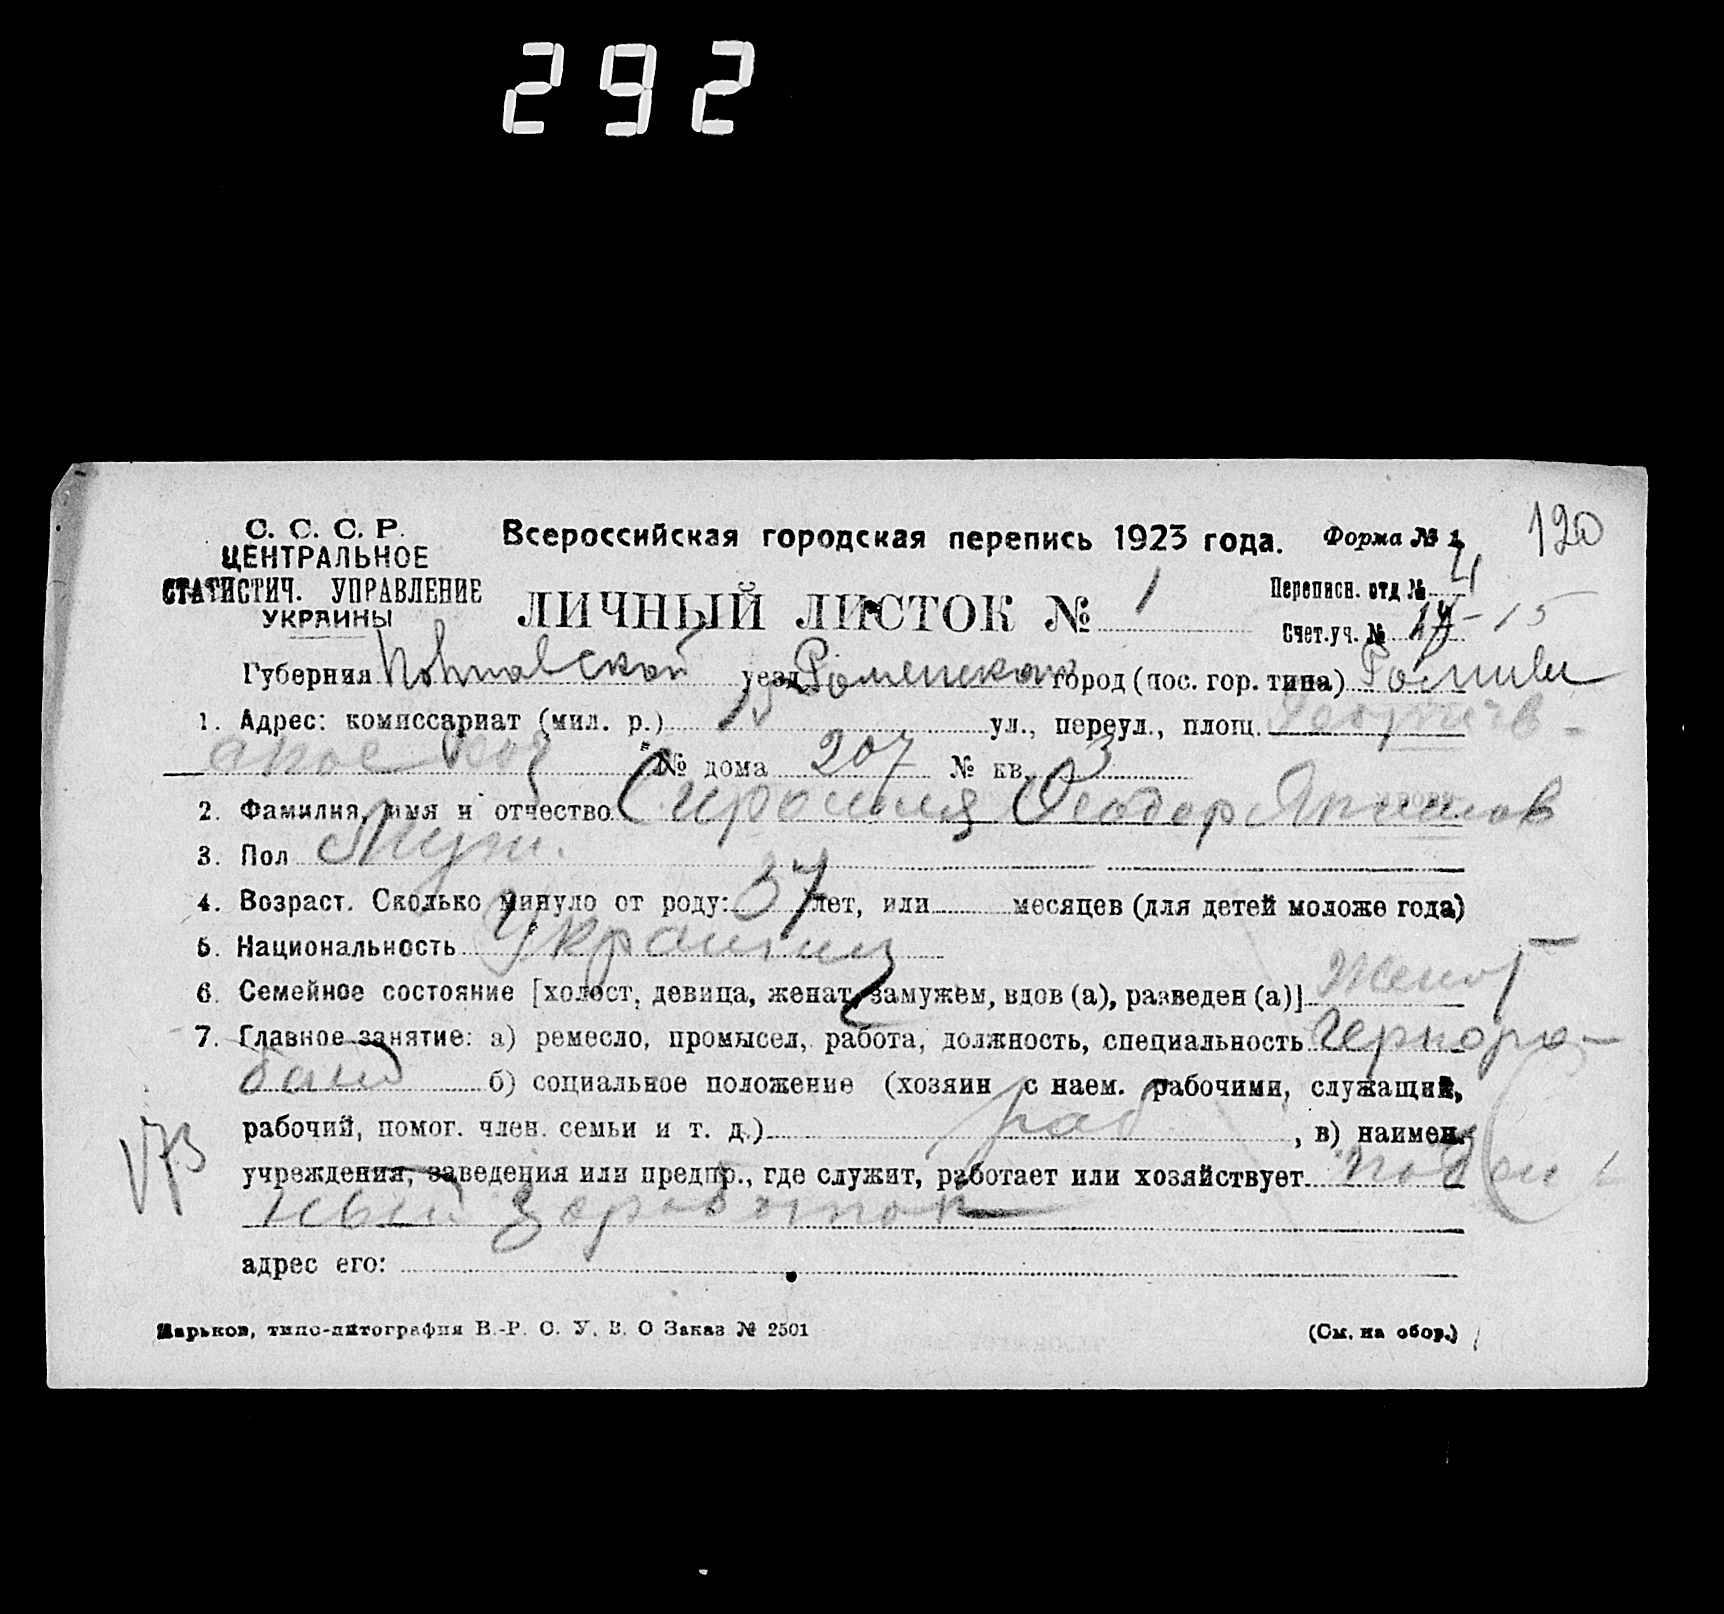 292
120
С. С. С. Р.
ЦЕНТРАЛЬНОЕ
СТАТИСТИЧ. УПРАВЛЕНИЕ
УКРАИНЫ
Всероссийская городская перепись 1923 года. Форма № 1
ЛИЧНЫЙ ЛИСТОК № 1
Переписн. отд № 4
Счет.уч. № 14-15
Губерния Полтавской уезд Роменском город (пос. гор. типа) Ромны
1. Адрес: комиссариат (мил. р.) ул., переул., площ. Георгиев-
ское № дома 207 № кв. 3
2. Фамилия, имя и отчество Сиромля Феодор
3. Пол Муж.
4. Возраст. Сколько минуло от роду: 37 лет, или месяцев (для детей моложе года)
5. Национальность Украинец
6. Семейное состояние [холост, девица, женат, замужем, вдов (а), разведен (а)] Женат
7. Главное занятие: а) ремесло, промысел, работа, должность, специальность Чернора-
боч б) социальное положение (хозяин с наем. рабочими, служащий,
рабочий, помог. член. семьи и т. д.) раб , в) наимен.
учреждения, заведения или предпр., где служит, работает или хозяйствует поден
ный заработок
адрес его:
Харьков, типо-литография В.-Р. С. У. В. О Заказ № 2501
(См. на обор.)